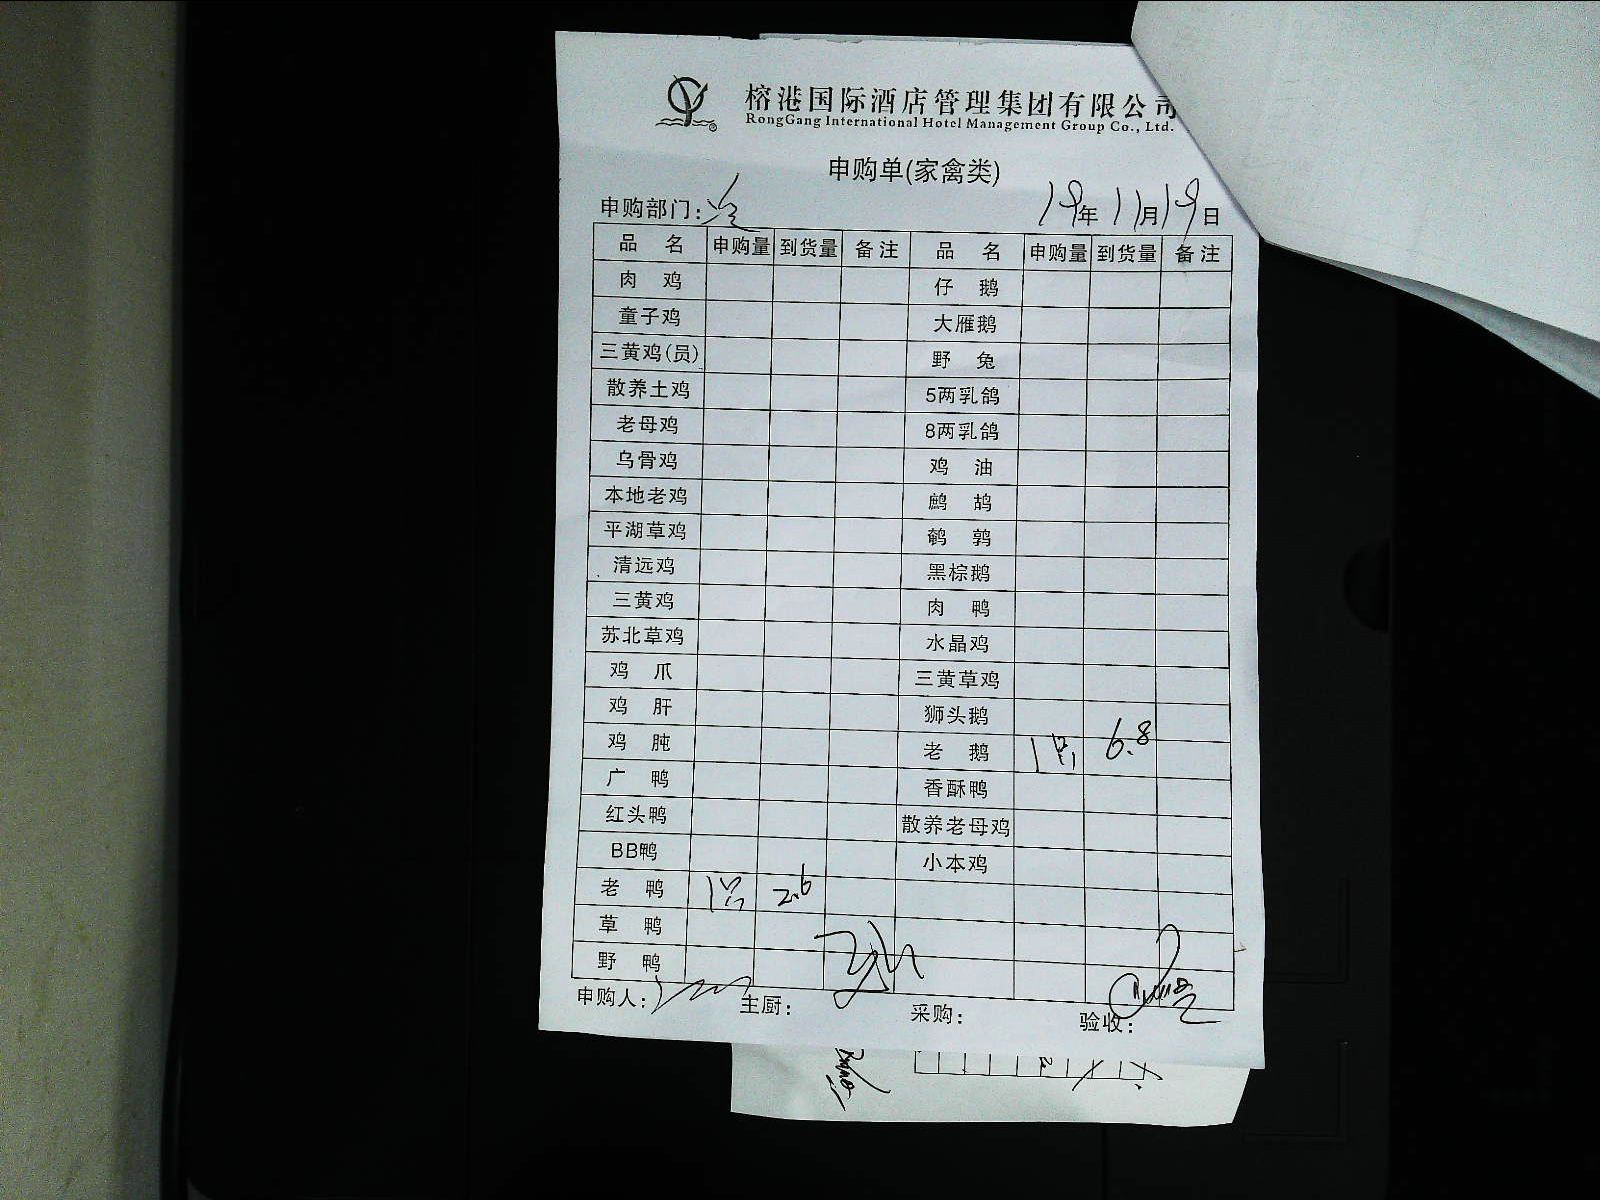 榕港国际酒店管理集团有限公司
RongGang International Hotel Management Group Co., Ltd.
申购单(家禽类)
申购部门: 19年11月19日
品名 申购量 到货量 备注 品名 申购量 到货量 备注
肉鸡 仔鹅
童子鸡 大雁鹅
三黄鸡(员) 野兔
散养土鸡 5两乳鸽
老母鸡 8两乳鸽
乌骨鸡 鸡油
本地老鸡 鹧鸪
平湖草鸡 鹌鹑
清远鸡 黑棕鹅
三黄鸡 肉鸭
苏北草鸡 水晶鸡
鸡爪 三黄草鸡
鸡肝 狮头鹅
鸡肫 老鹅 1只 6.8
广鸭 香酥鸭
红头鸭 散养老母鸡
BB鸭 小本鸡
老鸭 1只 2.6
草鸭
野鸭
申购人: 主厨: 采购: 验收: